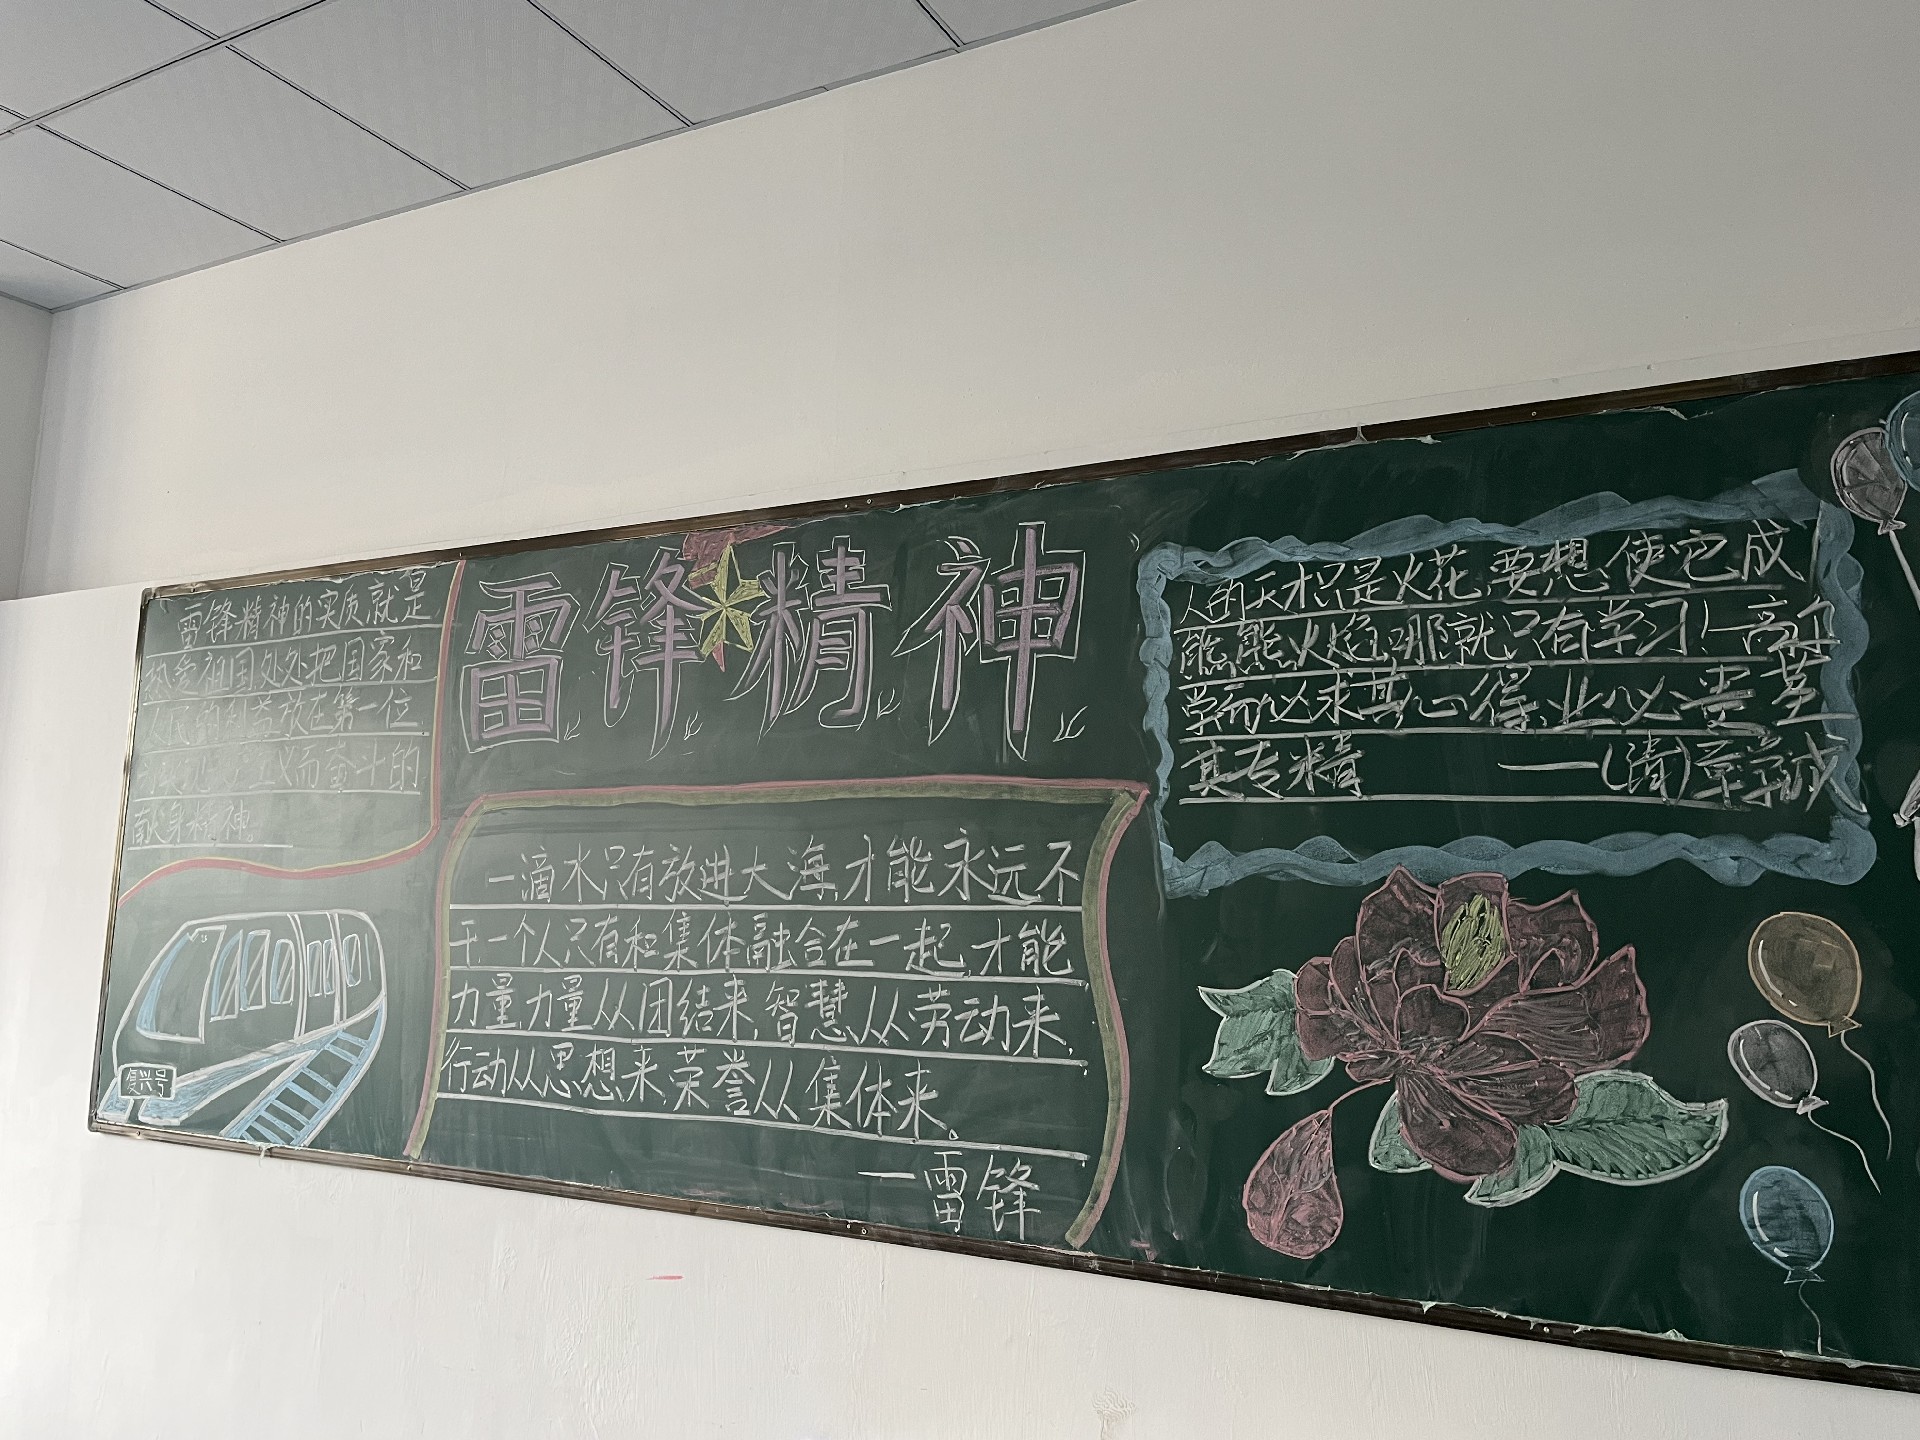 雷锋精神的实质就是
热爱祖国处处把国家和
人民的利益放在第一位
而奋斗的
献身精神。
复兴号
雷锋精神
一滴水只有放进大海,才能永远不
干一个人只有和集体融合在一起,才能
力量,力量从团结来,智慧从劳动来,
行动从思想来,荣誉从集体来。
一雷锋
人的天才只是火花,要想使它成
熊熊火焰,哪就只有学习!—高尔
学而必求其心得,业必贵
其专精 ——(清)章学诚